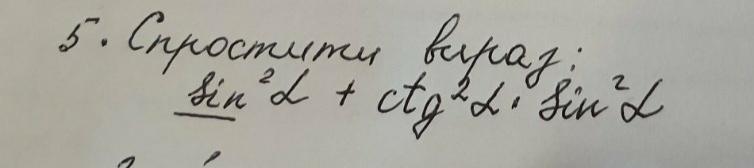 5. Спростити вираз:
sin²α + ctg²α · sin²α